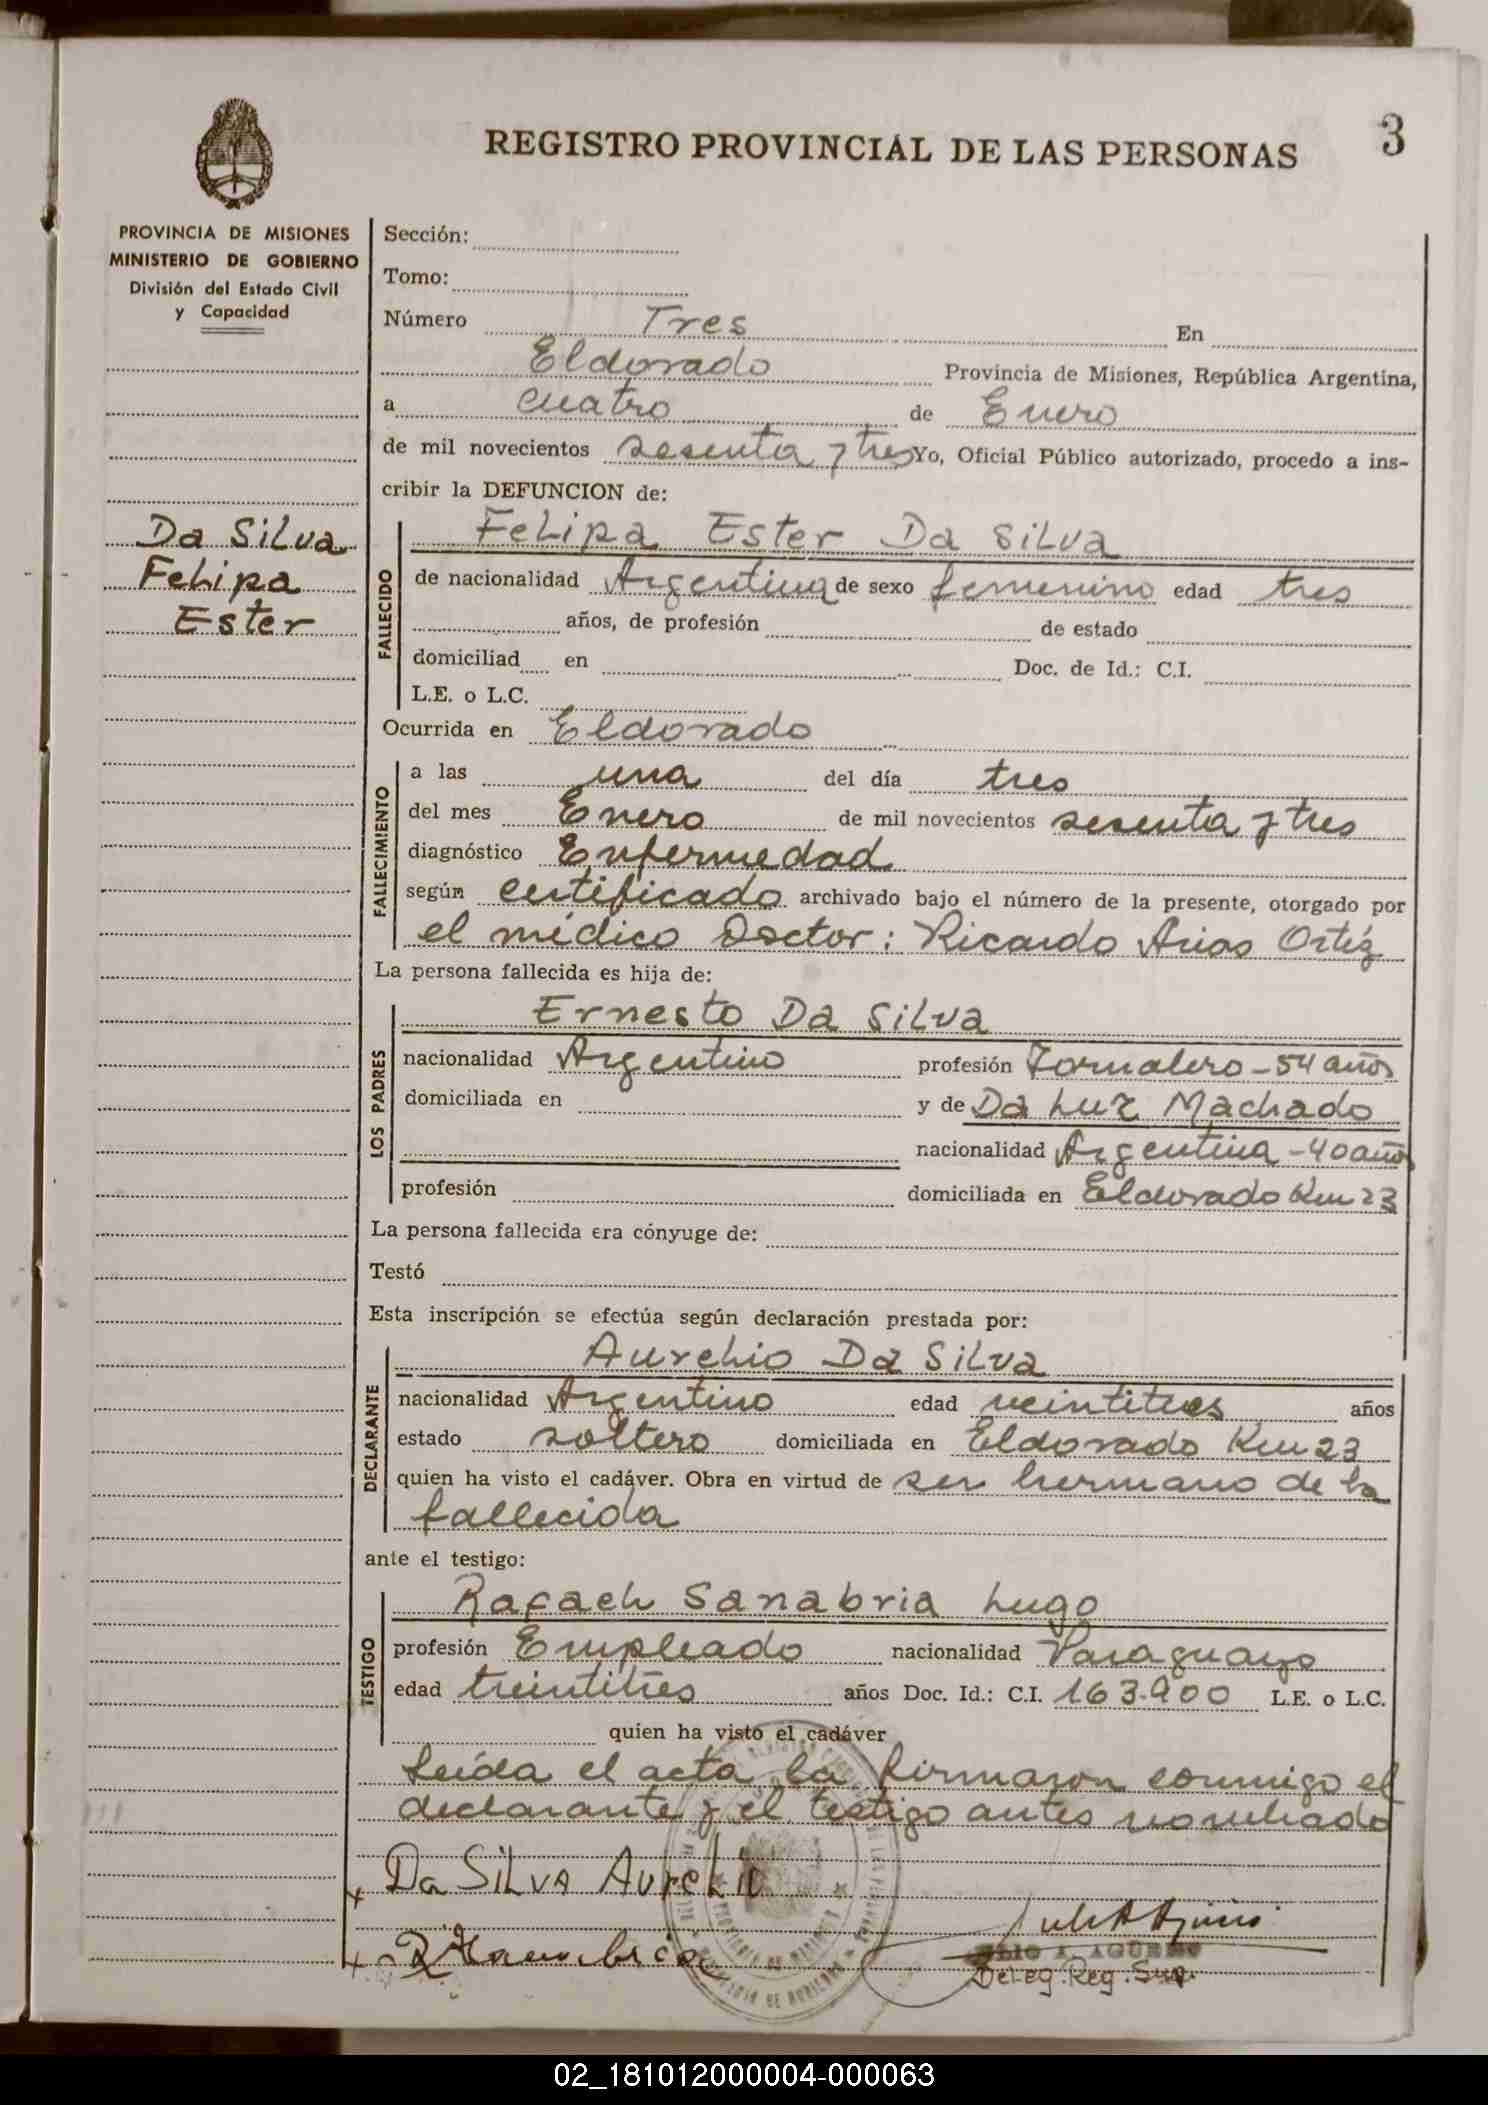 REGISTRO PROVINCIAL DE LAS PERSONAS
3
PROVINCIA DE MISIONES
MINISTERIO DE GOBIERNO
División del Estado Civil
y Capacidad
Da Silva
Felipa
Ester
Sección:
Tomo:
Número Tres En
Eldorado Provincia de Misiones, República Argentina,
a cuatro de Enero
de mil novecientos sesenta y tres Yo, Oficial Público autorizado, procedo a ins-
cribir la DEFUNCION de:
FALLECIDO
Felipa Ester Da Silva
de nacionalidad Argentina de sexo femenino edad tres
años, de profesión de estado
domiciliad en Doc. de Id.: C.I.
L.E. o L.C.
Ocurrida en Eldorado
FALLECIMIENTO
a las una del día tres
del mes Enero de mil novecientos sesenta y tres
diagnóstico Enfermedad
según certificado archivado bajo el número de la presente, otorgado por
el médico Doctor: Ricardo Arias Ortíz
La persona fallecida es hija de:
LOS PADRES
Ernesto Da Silva
nacionalidad Argentino profesión Jornalero - 54 años
domiciliada en y de Da Luz Machado
nacionalidad Argentina - 40 años
profesión domiciliada en Eldorado Km 23
La persona fallecida era cónyuge de:
Testó
Esta inscripción se efectúa según declaración prestada por:
DECLARANTE
Aurelio Da Silva
nacionalidad Argentino edad veintitres años
estado soltero domiciliada en Eldorado Km 23
quien ha visto el cadáver. Obra en virtud de ser hermano de la
fallecida
ante el testigo:
TESTIGO
Rafael Sanabria Lugo
profesión Empleado nacionalidad Paraguayo
edad treintitres años Doc. Id.: C.I. 163.900 L.E. o L.C.
quien ha visto el cadáver
Leída el acta la firmaron conmigo el
declarante y el testigo antes nombrado
x Da Silva Aurelio
x R Sanabria
JULIO A. AGÜERO
Deleg. Reg. Sup.
02_181012000004-000063